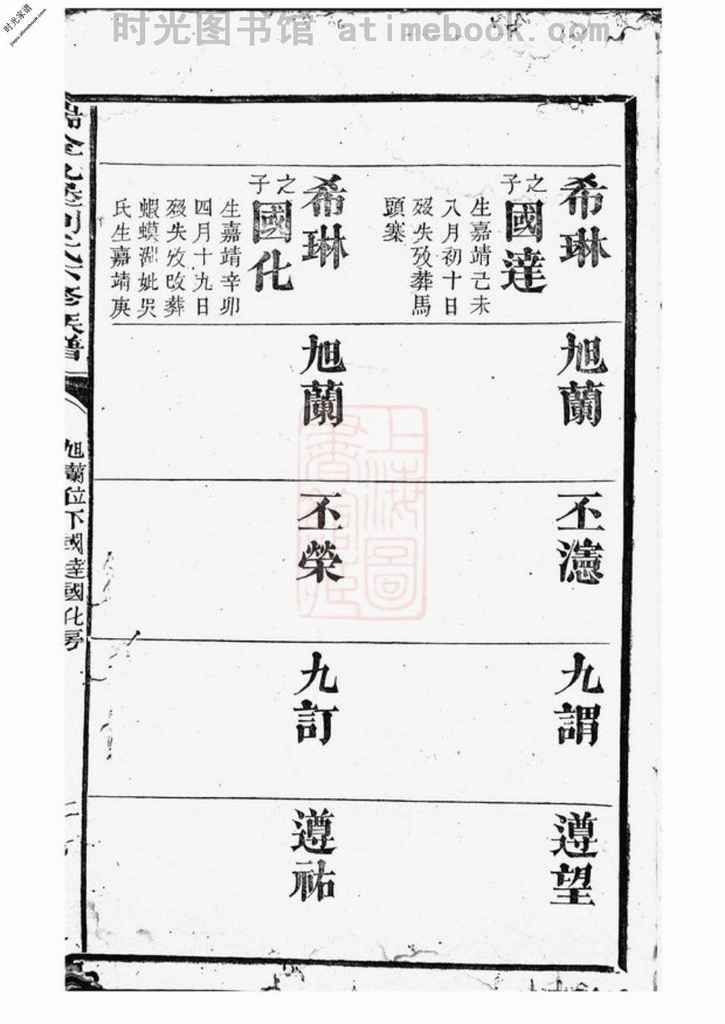 时光图书馆 atimebook.com
时光家谱
希琳
之子
國達
生嘉靖己未
八月初十日
歿失攷葬馬
頭寨
旭蘭
丕濾
九謂
遵望
希琳
之子
國化
生嘉靖辛卯
四月十九日
歿失攷改葬
蝦蟆渊妣吳
氏生嘉靖庚
旭蘭
丕榮
九訂
遵祐
劉氏六修族譜
旭蘭位下國達國化房
上海圖書館藏